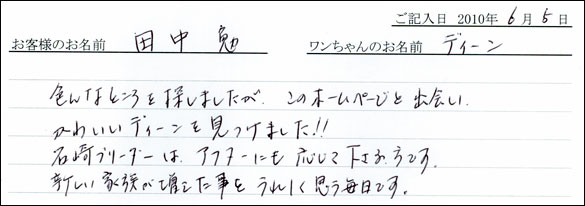 ご記入日 2010年 6月 5日
お客様のお名前 田中 勉 ワンちゃんのお名前 ディーン
色んなところを探しましたが、このホームページと出会い、
かわいいディーンを見つけました!!
石崎ブリーダーは、アフターにも応じて下さるそうです。
新しい家族が増えた事をうれしく思う毎日です。